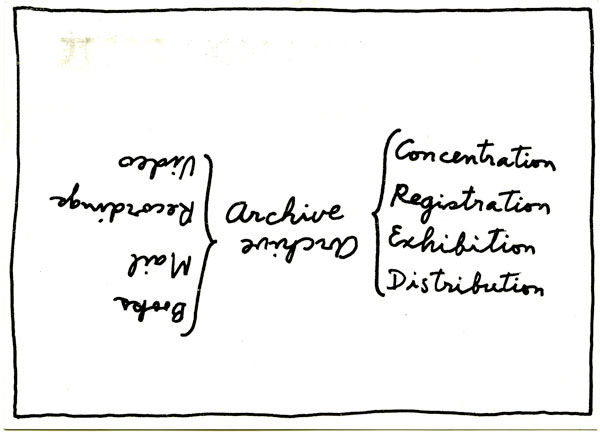 Archive
Concentration
Registration
Exhibition
Distribution
Archive
Books
Mail
Recordings
Video